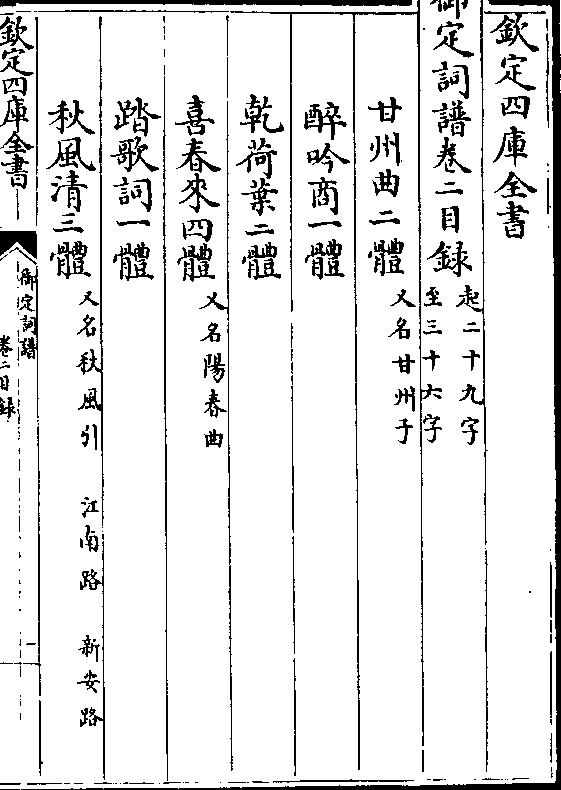 欽定四庫全書
御定詞譜卷二目録 起二十九字至三十六字
甘州曲二體 又名甘州子
醉吟商一體
乾荷葉二體
喜春來四體 又名陽春曲
踏歌詞一體
秋風清三體 又名秋風引 江南路 新安路
欽定四庫全書
御定詞譜
卷二目録
一